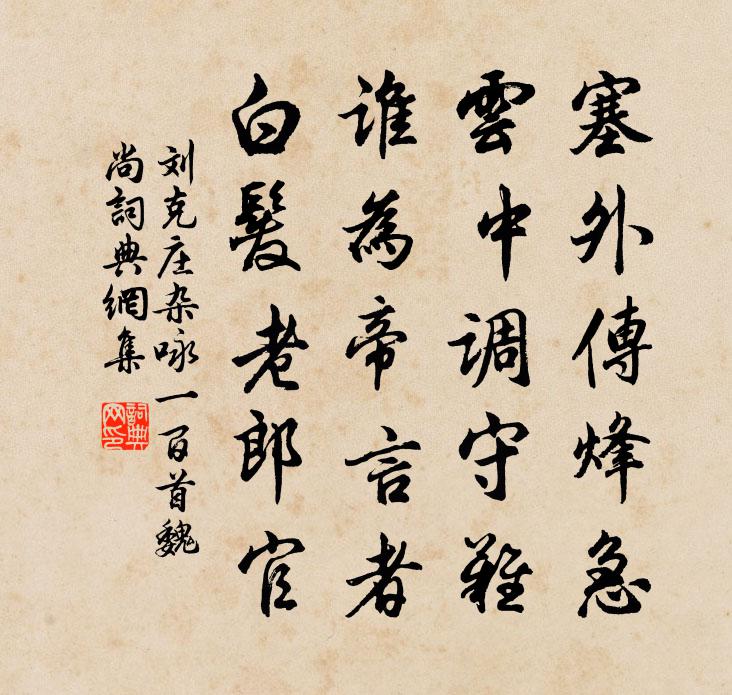 塞外傳烽急
雲中調守難
誰為帝言者
白髮老郎官
刘克庄杂咏一百首魏
尚詞典網集
詞典
网印